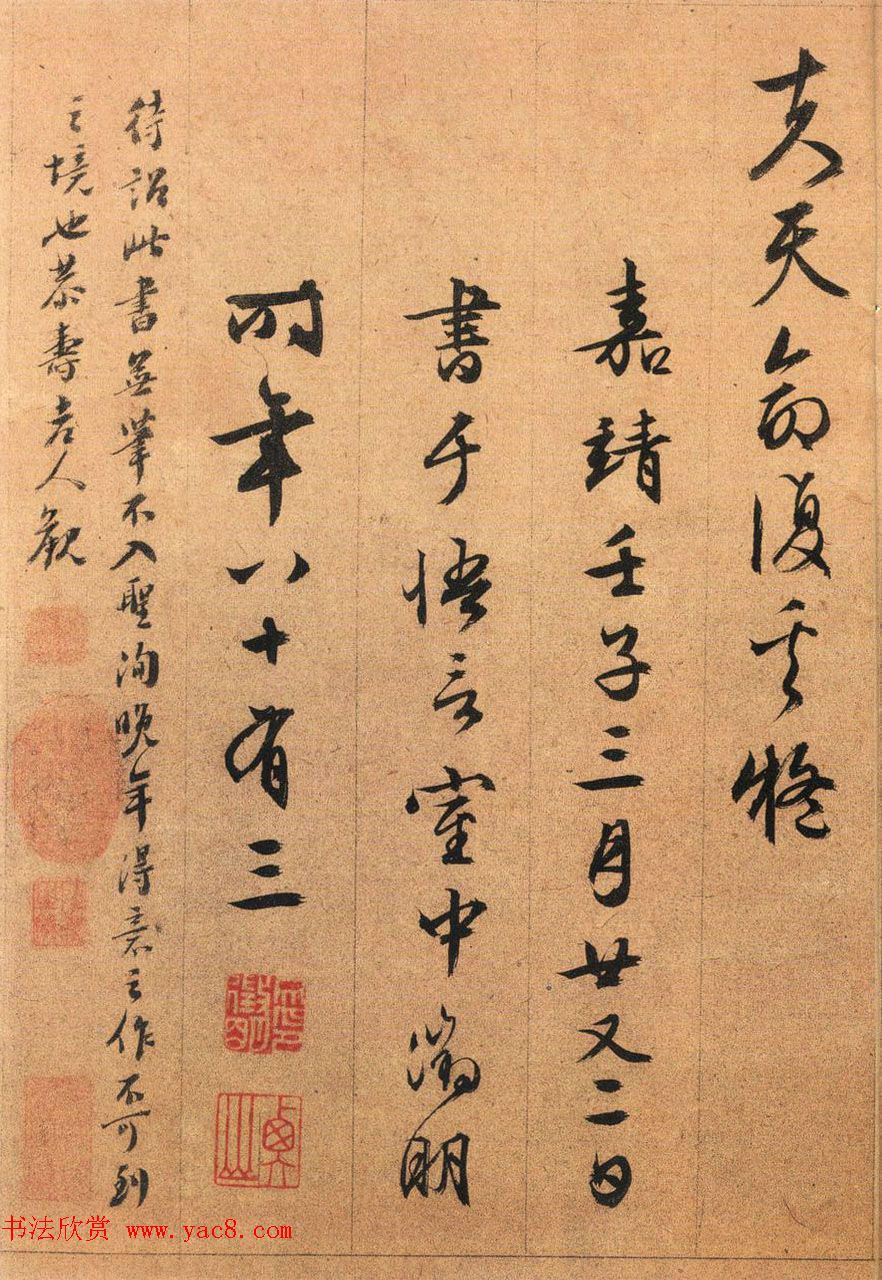 夫天命復奚疑
嘉靖壬子三月廿又二日
書于悟言室中徵明
時年八十有三
待詔此書無筆不入聖洵晚年得意之作不可到
之境也恭壽老人觀
书法欣赏 www.yac8.com